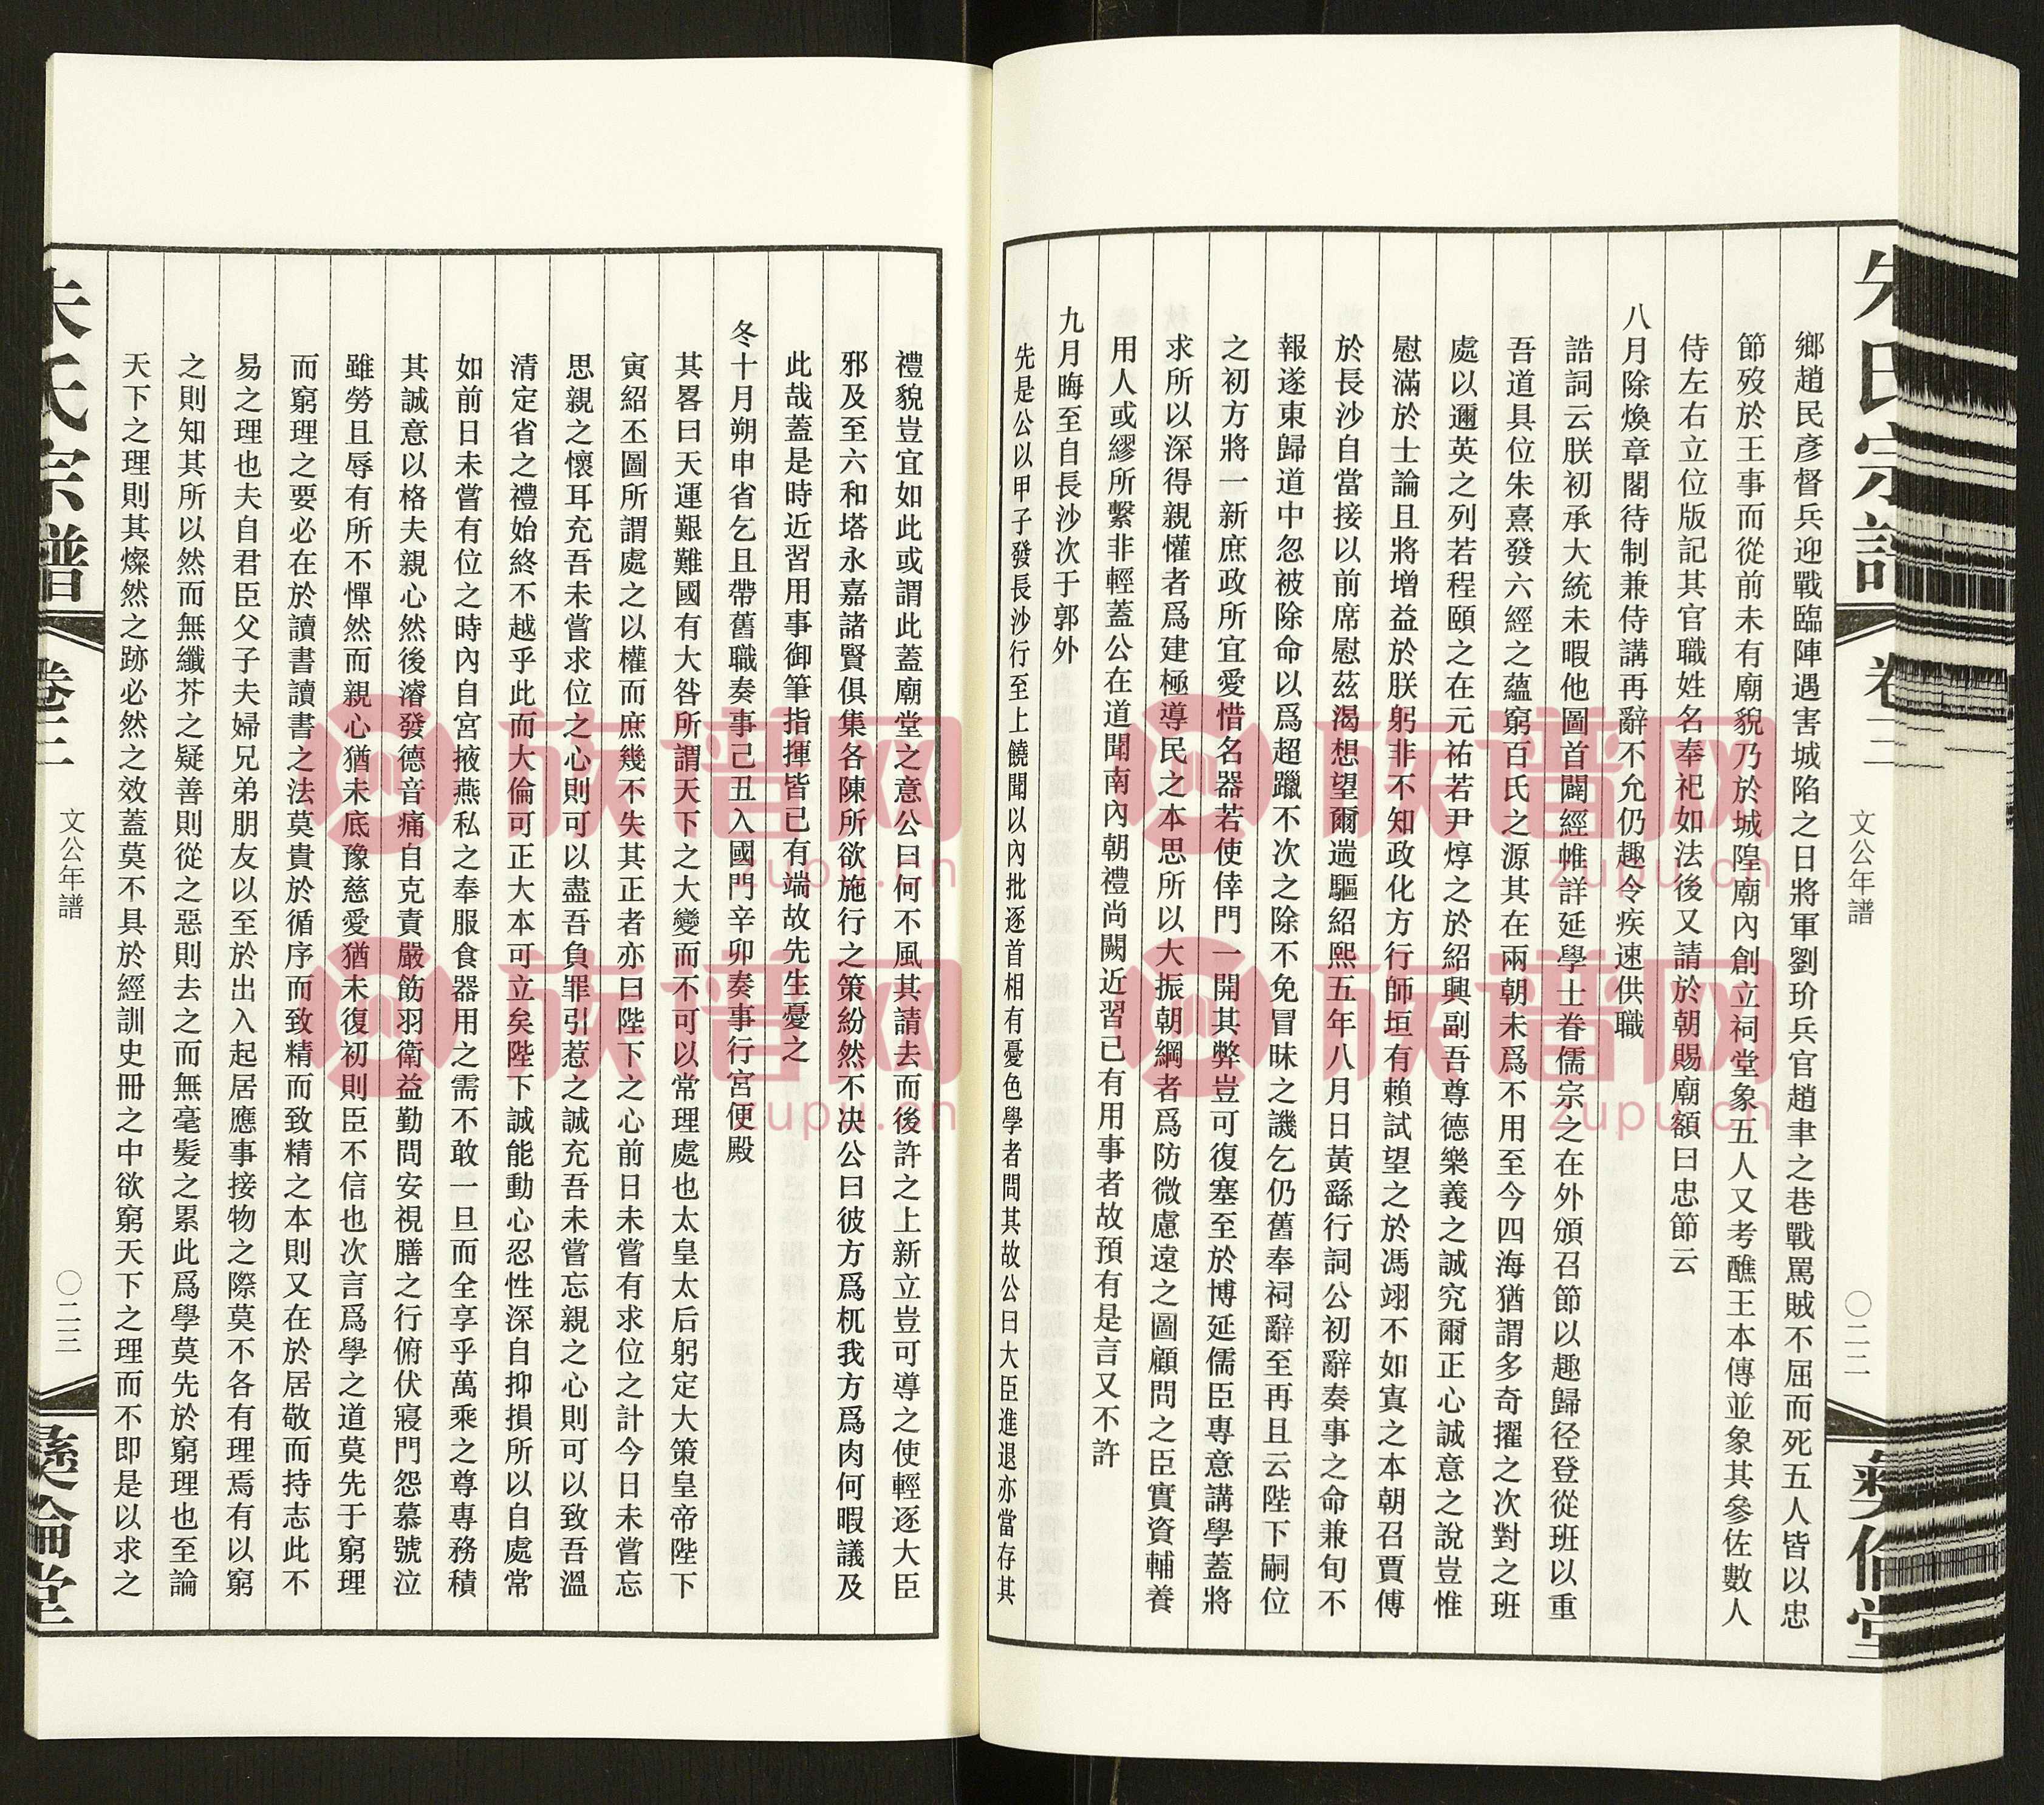 朱氏宗譜
卷三
文公年譜
〇二二
彝倫堂
鄉趙民彥督兵迎戰臨陣遇害城陷之日將軍劉玠兵官趙聿之巷戰罵賊不屈而死五人皆以忠
節歿於王事而從前未有廟貌乃於城隍廟內創立祠堂象五人又考醮王本傳並象其參佐數人
侍左右立位版記其官職姓名奉祀如法後又請於朝賜廟額曰忠節云
八月除煥章閣待制兼侍講再辭不允仍趣令疾速供職
誥詞云朕初承大統未暇他圖首闢經帷詳延學士眷儒宗之在外頒召節以趣歸径登從班以重
吾道具位朱熹發六經之蘊窮百氏之源其在兩朝未爲不用至今四海猶謂多奇擢之次對之班
處以邇英之列若程頤之在元祐若尹焞之於紹興副吾尊德樂義之誠究爾正心誠意之說豈惟
慰滿於士論且將增益於朕躬非不知政化方行師垣有賴試望之於馮翊不如寘之本朝召賈傅
於長沙自當接以前席慰茲渴想望爾遄驅紹熙五年八月日黃繇行詞公初辭奏事之命兼旬不
報遂東歸道中忽被除命以爲超躐不次之除不免冒昧之譏乞仍舊奉祠辭至再且云陛下嗣位
之初方將一新庶政所宜愛惜名器若使倖門一開其弊豈可復塞至於博延儒臣專意講學蓋將
求所以深得親懽者爲建極導民之本思所以大振朝綱者爲防微慮遠之圖顧問之臣實資輔養
用人或繆所繫非輕蓋公在道聞南內朝禮尚闕近習己有用事者故預有是言又不許
九月晦至自長沙次于郭外
先是公以甲子發長沙行至上饒聞以內批逐首相有憂色學者問其故公曰大臣進退亦當存其
禮貌豈宜如此或謂此蓋廟堂之意公曰何不風其請去而後許之上新立豈可導之使輕逐大臣
邪及至六和塔永嘉諸賢俱集各陳所欲施行之策紛然不决公曰彼方爲杌我方爲肉何暇議及
此哉蓋是時近習用事御筆指揮皆已有端故先生憂之
冬十月朔申省乞且帶舊職奏事己丑入國門辛卯奏事行宮便殿
其畧曰天運艱難國有大咎所謂天下之大變而不可以常理處也太皇太后躬定大策皇帝陛下
寅紹丕圖所謂處之以權而庶幾不失其正者亦曰陛下之心前日未嘗有求位之計今日未嘗忘
思親之懷耳充吾未嘗求位之心則可以盡吾負罪引惹之誠充吾未嘗忘親之心則可以致吾溫
清定省之禮始終不越乎此而大倫可正大本可立矣陛下誠能動心忍性深自抑損所以自處常
如前日未嘗有位之時內自宮掖燕私之奉服食器用之需不敢一旦而全享乎萬乘之尊專務積
其誠意以格夫親心然後濬發德音痛自克責嚴飭羽衛益勤問安視膳之行俯伏寢門怨慕號泣
雖勞且辱有所不憚然而親心猶未底豫慈愛猶未復初則臣不信也次言爲學之道莫先于窮理
而窮理之要必在於讀書讀書之法莫貴於循序而致精而致精之本則又在於居敬而持志此不
易之理也夫自君臣父子夫婦兄弟朋友以至於出入起居應事接物之際莫不各有理焉有以窮
之則知其所以然而無纖芥之疑善則從之惡則去之而無毫髮之累此爲學莫先於窮理也至論
天下之理則其燦然之跡必然之效蓋莫不具於經訓史冊之中欲窮天下之理而不即是以求之
朱氏宗譜
卷三
文公年譜
〇二三
彝倫堂
族谱网
zupu.cn
族谱网
zupu.cn
族谱网
zupu.cn
族谱网
zupu.cn